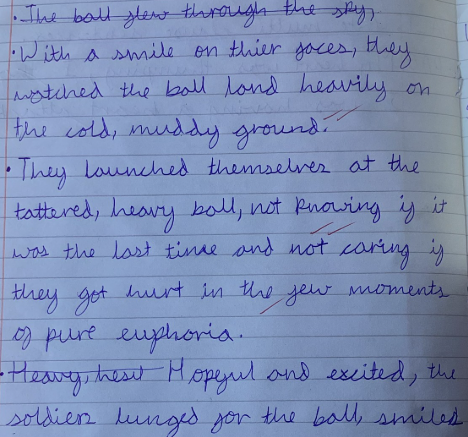 • The ball flew through the sky,
• With a smile on thier faces, they
watched the ball land heavily on
the cold, muddy ground.
• They launched themselves at the
tattered, heavy ball, not knowing if it
was the last time and not caring if
they got hurt in the few moments
of pure euphoria.
• Heavy, hesit Hopeful and excited, the
soldiers lunged for the ball, smiled